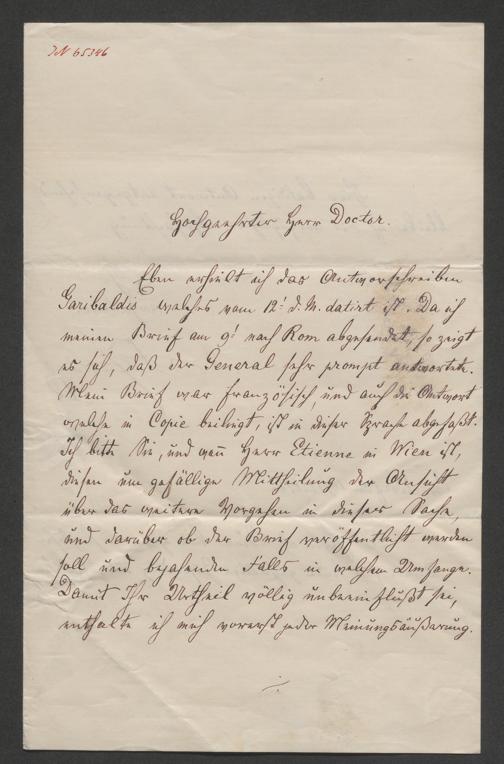 IN 65346
Hochgeehrter Herr Doctor.
Eben erhielt ich das Antwortschreiben
Garibaldis welches vom 12t d. M. datirt ist. Da ich
meinen Brief am 9t nach Rom abgesendet, so zeigt
es sich, daß der General sehr prompt antwortete.
Mein Brief war französisch und auch die Antwort
welche in Copie beiliegt, ist in dieser Sprache abgefaßt.
Ich bitte Sie, und wenn Herr Etienne in Wien ist,
diesen um gefällige Mittheilung der Ansicht
über das weitere Vorgehen in dieser Sache,
und darüber ob der Brief veröffentlicht werden
soll und bejahenden Falls in welchem Umfange.
Damit Ihr Urtheil völlig unbeeinflußt sei,
enthalte ich mich vorerst jeder Meinungsäußerung.
./.